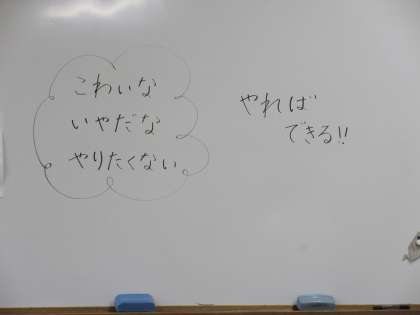 こわいな
いやだな
やりたくない
やれば
できる!!